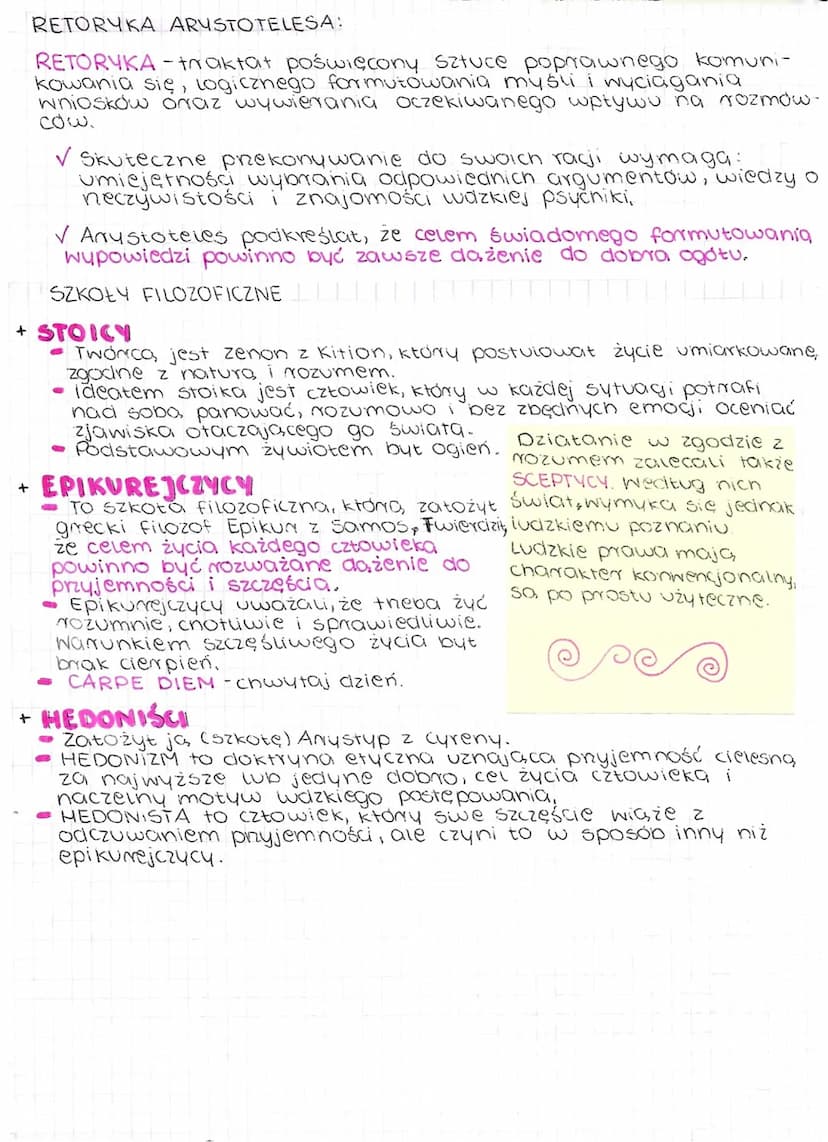 RETORYKA ARYSTOTELESA:
RETORYKA - traktat poświęcony sztuce poprawnego komuni-
kowania się, logicznego formułowania myśli i wyciągania
wniosków oraz wywierania oczekiwanego wpływu na rozmów-
ców.
√ Skuteczne przekonywanie do swoich racji wymaga:
umiejętności wybrania odpowiednich argumentów, wiedzy o
rzeczywistości i znajomości ludzkiej psychiki.
√ Arystoteles podkreślał, że celem świadomego formułowania
wypowiedzi powinno być zawsze dążenie do dobra ogółu.
SZKOŁY FILOZOFICZNE
+ STOICY
- Twórcą jest Zenon z Kition, który postulował życie umiarkowane,
zgodne z naturą i rozumem.
- Ideałem stoika jest człowiek, który w każdej sytuacji potrafi
nad sobą panować, rozumowo i bez zbędnych emocji oceniać
zjawiska otaczającego go świata.
- Podstawowym żywiołem był ogień.
+ EPIKUREJCZYCY
- To szkoła filozoficzna, którą założył
grecki filozof Epikur z Samos. Twierdził,
że celem życia każdego człowieka
powinno być rozważane dążenie do
przyjemności i szczęścia.
- Epikurejczycy uważali, że trzeba żyć
rozumnie, cnotliwie i sprawiedliwie.
Warunkiem szczęśliwego życia był
brak cierpień.
- CARPE DIEM - chwytaj dzień.
Działanie w zgodzie z
rozumem zalecali także
SCEPTYCY. Według nich
świat wymyka się jednak
ludzkiemu poznaniu.
Ludzkie prawa mają
charakter konwencjonalny,
są po prostu użyteczne.
+ HEDONIŚCI
- Założył ją (szkołę) Arystyp z Cyreny.
- HEDONIZM to doktryna etyczna uznająca przyjemność cielesną
za najwyższe lub jedyne dobro, cel życia człowieka i
naczelny motyw ludzkiego postępowania.
- HEDONISTA to człowiek, który swe szczęście wiąże z
odczuwaniem przyjemności, ale czyni to w sposób inny niż
epikurejczycy.